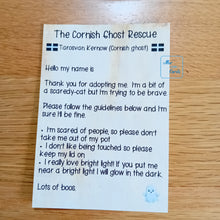 The Cornish Ghost Rescue
Tarosvan Kernow (Cornish ghost)
Hello my name is
Thank you for adopting me. I'm a bit
of a scaredy-cat but I'm trying to be brave
Please follow the guidelines below and I'm
sure I'll be fine.
- I'm scared of people, so please don't
take me out of my pot
- I don't like being touched so please
keep my lid on
- I really love bright light! If you put me
near a bright light I will glow in the dark.
Lots of boos